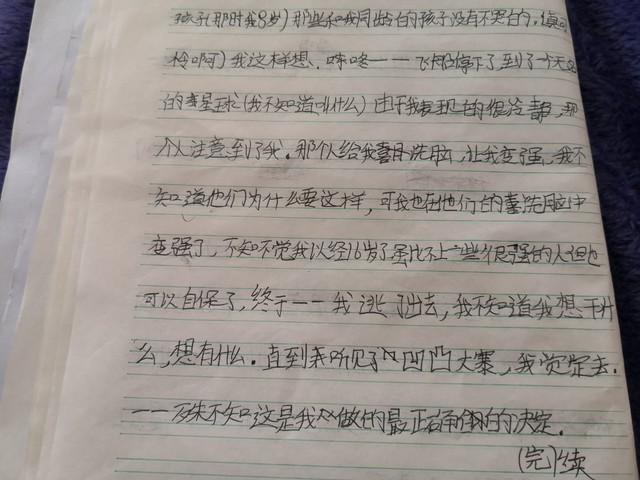 孩子(那时我8岁)那些和我同龄的孩子没有不哭的,(真可
怜啊)我这样想,咚咚——飞船停下了,到了一个
的星球(我不知道叫什么)由于我表现的很冷静,那
个人注意到了我。那个人给我喜洗脑,让我变强,我不
知道他们为什么要这样,可我也在他们的喜洗脑中
变强了,不知不觉我以经16岁了虽比不上一些很强的人但也
可以自保了,终于——我逃了出去,我不知道我想干什
么,想有什么.直到我听见了凹凸大寨,我觉定去.
——殊不知这是我做的最正确的决定.
(完)续